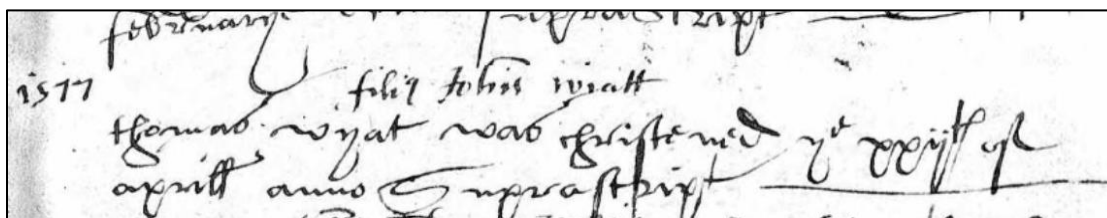 februarye suprascript
1577
filij Johis wyatt
thomas wyat was christened ye xxijth of
aprill anno Suprascript